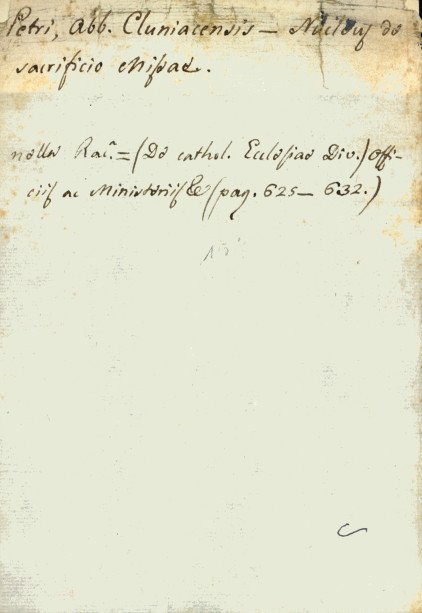 Petri, Abb. Cluniacensis — Nucleus de
sacrificio Missae.
nella Racᵃ. = (De cathol. Ecclesiae Div.) Offi-
ciis ac Ministeriis &(pag. 625 — 632.)